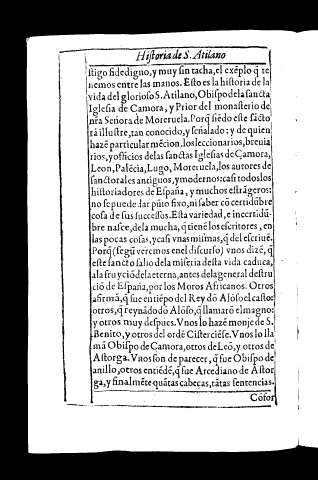 Historia de S. Atilano
stigo fidedigno, y muy sin tacha, el exẽplo q̃ te
nemos entre las manos. Esto es la historia de la
vida del glorioso S. Atilano, Obispo de la sancta
Iglesia de Çamora, y Prior del monasterio de
nra Señora de Moreruela. Porq̃ siẽdo este sãcto
tã illustre, tan conocido, y señalado; y de quien
hazẽ particular mẽcion, los leccionarios, brevia
rios, y officios de las sanctas Iglesias de Çamora,
Leon, Palẽcia, Lugo, Moreruela, los autores de
sanctorales antiguos, y modernos: casi todos los
historiadores de España, y muchos estrãgeros:
no se puede dar pũto fixo, ni saber cõ certidũbre
cosa de sus sucessos. Esta variedad, e incertidũ-
bre nasce, de la mucha, q̃ tienẽ los escritores, en
las pocas cosas, y casi vnas mismas, q̃ del escriuẽ.
Porq̃ (segũ veremos en el discurso) vnos dizẽ, q̃
este sancto salio de la miseria desta vida caduca,
a la fruyciõ de la eterna, antes de la general destru
ciõ de España, por los Moros Africanos. Otros
afirmã, q̃ fue en tiẽpo del Rey dõ Alõso el casto:
otros, q̃ reynãdo dõ Alõso, q̃ llamarõ el magno:
y otros muy despues. Vnos lo hazẽ monje de S.
Benito, y otros del ordẽ Cisterciẽse. Vnos lo lla
mã Obispo de Çamora, otros de Leõ, y otros de
Astorga. Vnos son de parecer, q̃ fue Obispo de
anillo, otros entiẽdẽ, q̃ fue Arcediano de Astor
ga, y finalmẽte quãtas cabeças, tãtas sentencias.
Cõfor